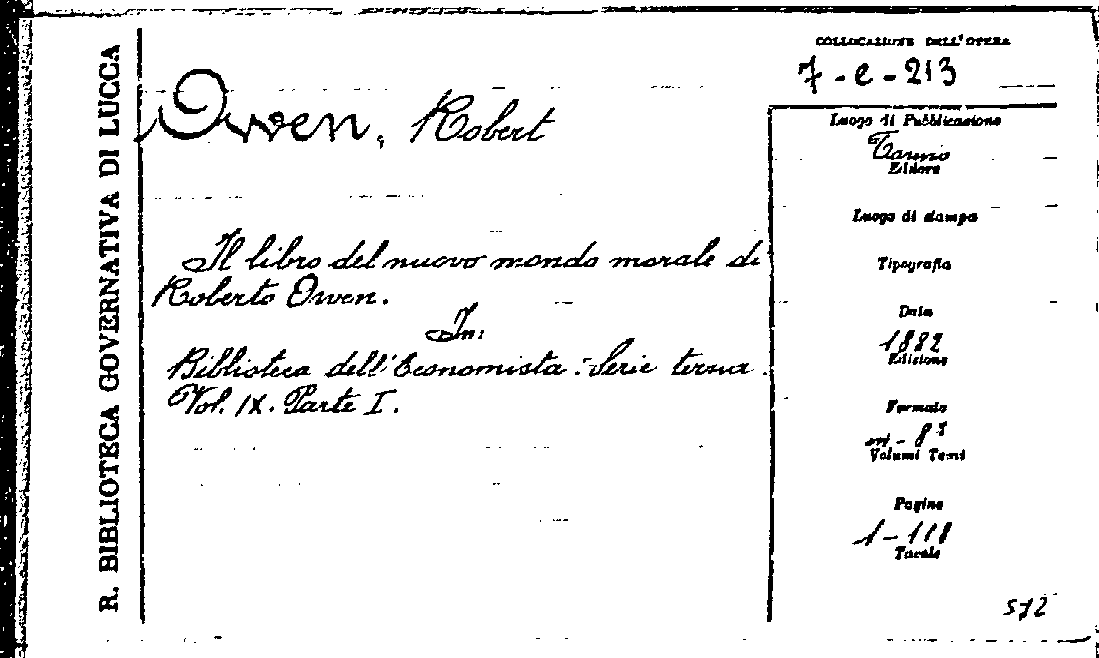 R. BIBLIOTECA GOVERNATIVA DI LUCCA
Owen, Robert
Il libro del nuovo mondo morale di
Roberto Owen.
In:
Biblioteca dell'Economista. Serie terza.
Vol. IX. Parte I.
COLLOCAZIONE DELL'OPERA
7-e-213
Luogo di Pubblicazione
Torino
Editore
Luogo di stampa
Tipografia
Data
1882
Edizione
Formato
in-8°
Volumi Tomi
Pagine
1-118
Tavole
572